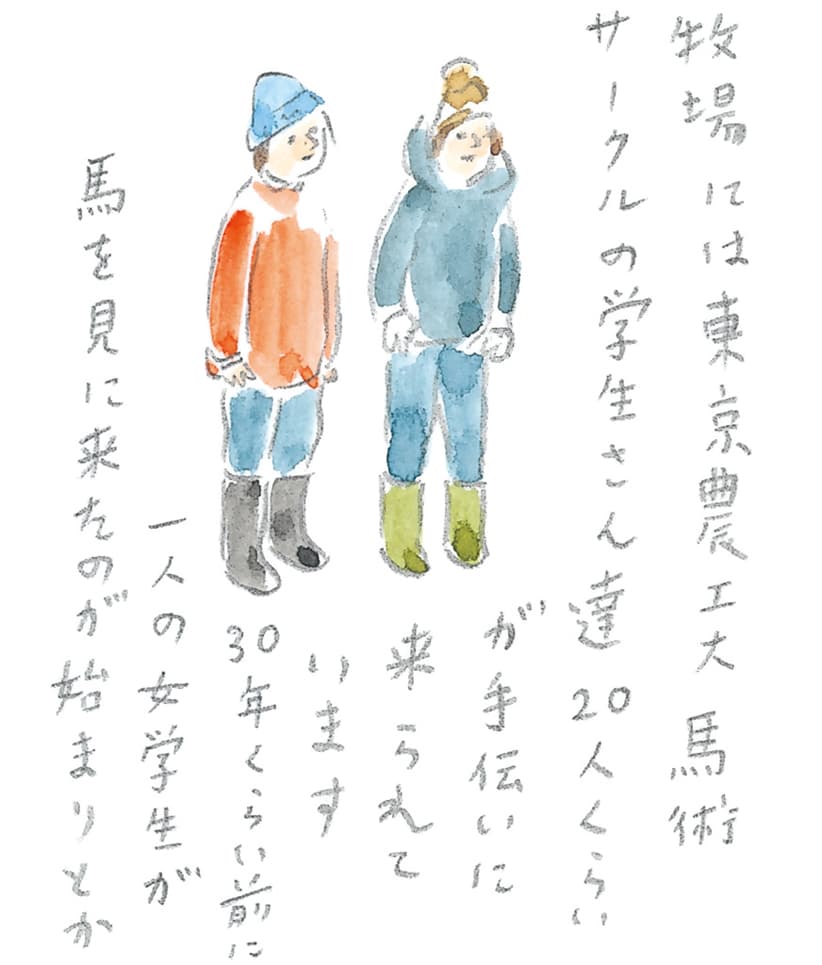 牧場には東京農工大 馬術
サークルの学生さん達 20人くらい
が手伝いに
来られて
います
30年くらい前に
一人の女学生が
馬を見に来たのが始まりとか